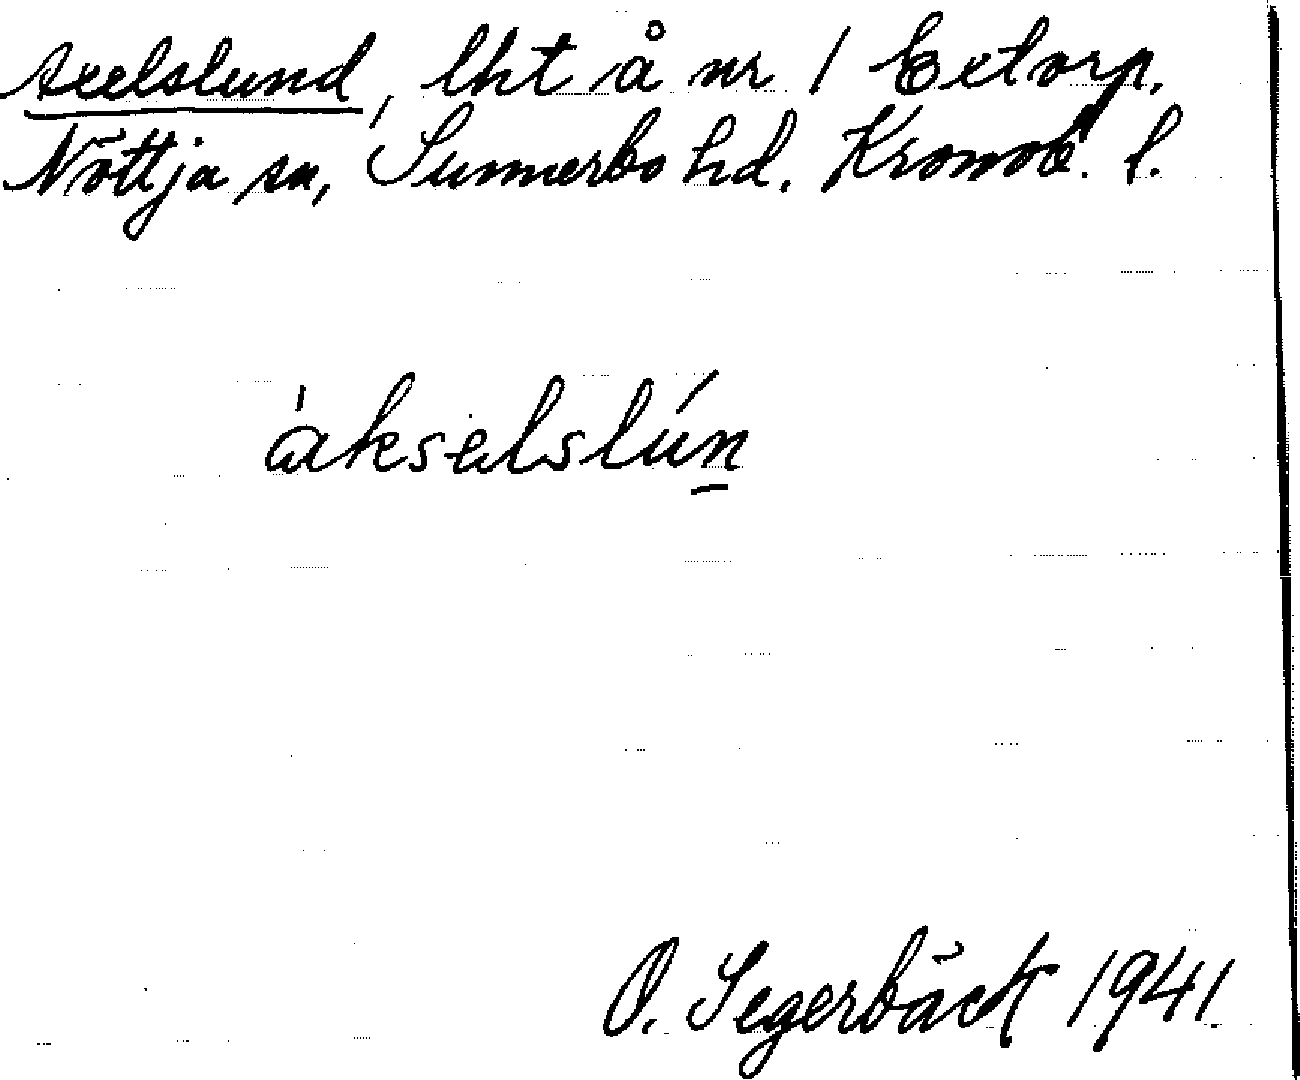 Axelslund, lht å nr 1 Extorp.
Nöttja sn, Sunnerbo hd. Kronob. l.
àkselslún
O. Segerbäck 1941.